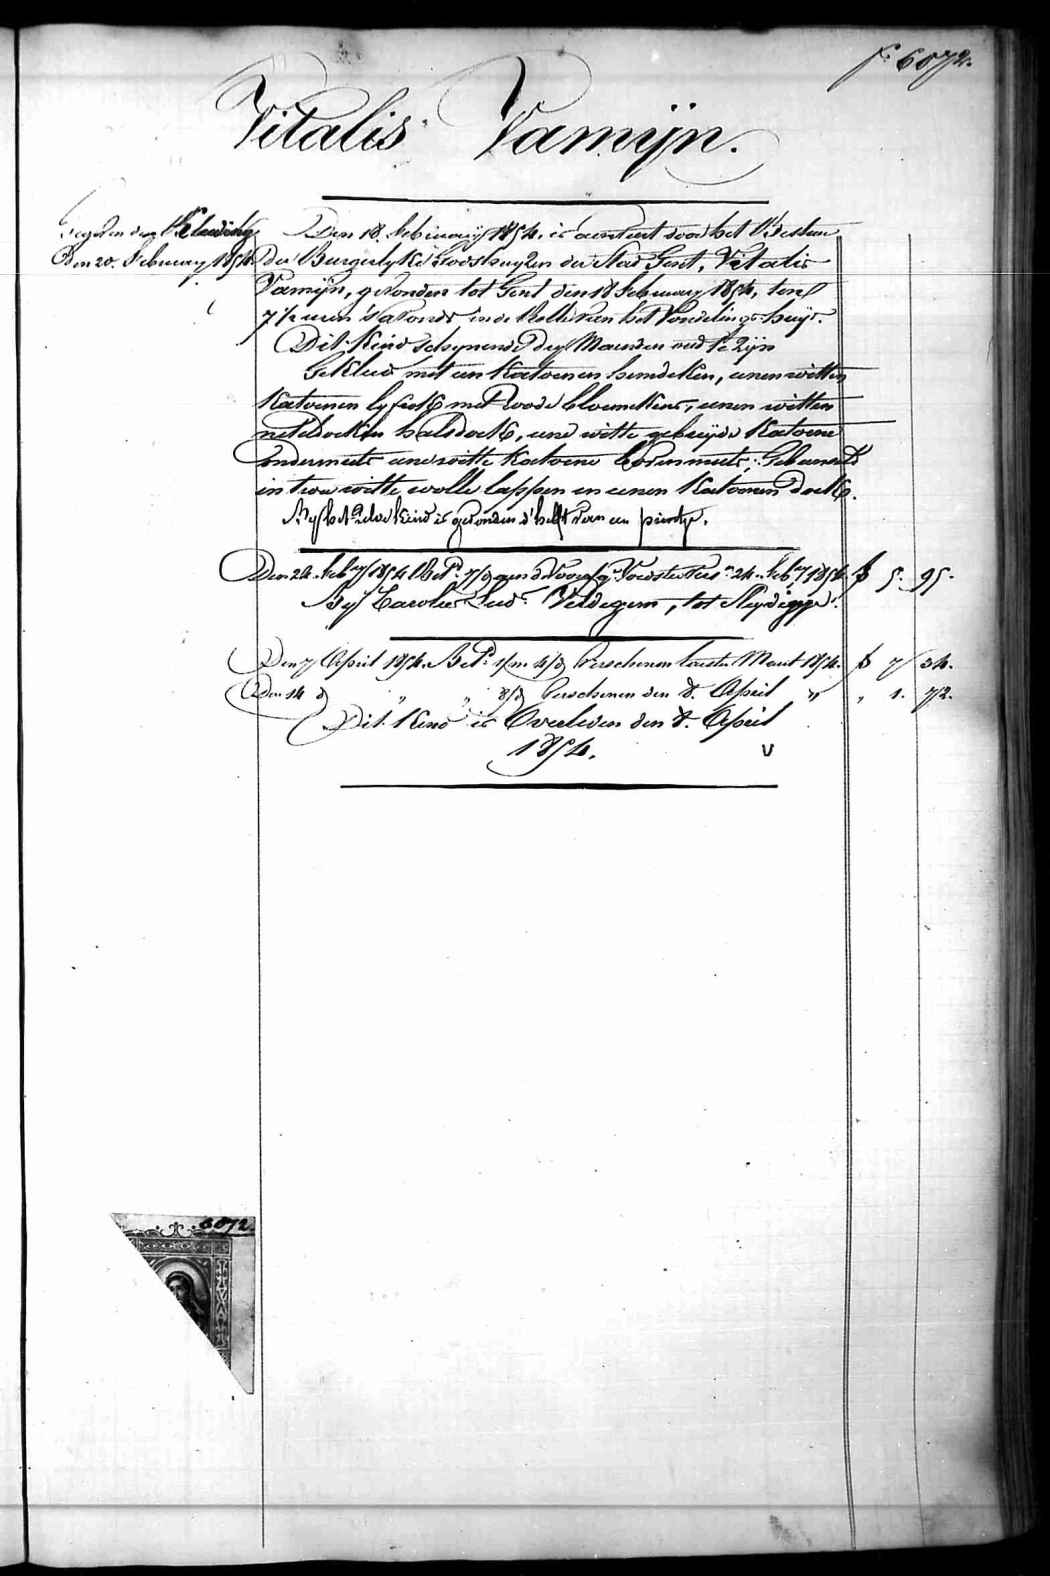 f.º 6072.
Vitalis Vamijn.
gegeven den
Den 20. february 1854
Den 18. february 1854. is aenveert door het Bestuer
der Burgerlyke Godshuyzen der Stad Gent, Vitalis
Vamijn, gevonden tot Gent den 18 february 1854, ten
7 1/2 uren 's avonds in de Rolle van het Vondelinge-huys.
Dit Kind schynende dry Maenden oud te zijn
Gekleed met een Katoenen hemdeken, eenen witten
Katoenen lyfrok met roode bloemekens, eenen witten
neteldoeken halsdoek, eene witte gebreyde Katoene
ondermuts eene witte Katoene bovenmuts; Gebunseld
in twee witte wolle lappen en eenen Katoenen doek.
By het zelve Kind is gevonden d'helft van een prentje.
Den 24. feb.ry 1854 Bet.d 7/9 24. feb.ry 1854. fr 5. 95.
By Carolus Lud. Veldegem, tot Sleydinge.
Den 7 April 1854. Bet.d 1/m 4/d verschenen laesten Maert 1854. fr 7 34.
Den 14 d° " " 8/d verschenen den 8. April " " 1. 72.
Dit Kind is Overleden den 8. April
1854.
V
6072.